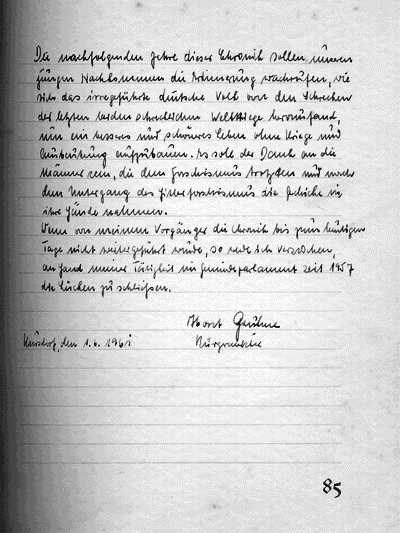 Die nachfolgenden Jahre dieser Chronik sollen unseren
jungen Nachkommen die Erinnerung wachrufen, wie
sich das irregeführte deutsche Volk aus den Schrecken
der letzten beiden schrecklichen Weltkriege herausfand,
um ein besseres und schöneres Leben ohne Kriege und
Ausbeutung aufzubauen. Es soll der Dank an die
Männer sein, die dem Faschismus trotzten und nach
dem Untergang des Hitlerfaschismus die Geschicke in
ihre Hände nahmen.
Wenn von meinem Vorgänger die Chronik bis zum heutigen
Tage nicht weitergeführt wurde, so werde ich versuchen,
an Hand meiner Tätigkeit im Gemeindeparlament seit 1957
die Lücken zu schließen.
Horst
den 1.6.1961 Bürgermeister
85